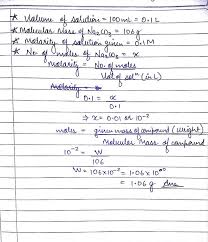 * Volume of solution = 100 ml = 0.1 L
* Molecular Mass of Na2CO3 = 106 g
* Molarity of solution given = 0.1 M
* No. of moles of Na2CO3 = x
Molarity = No. of moles
Vol of solⁿ (in L)
Molarity =
0.1 = x
0.1
⇒ x = 0.01 or 10⁻²
moles = given mass of compound (weight)
Molecular Mass of compound
10⁻² = W
106
W = 106×10⁻² = 1.06×10⁰
= 1.06 g